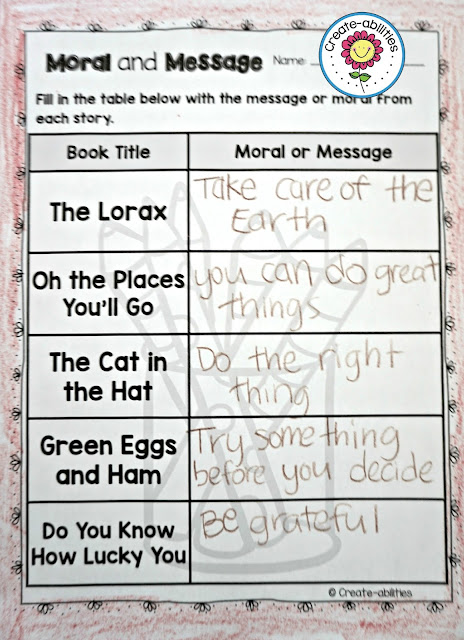 Create-abilities
Moral and Message Name:
Fill in the table below with the message or moral from
each story.
Book Title
Moral or Message
The Lorax
Take care of the
Earth
Oh the Places
You'll Go
you can do great
things
The Cat in
the Hat
Do the right
thing
Green Eggs
and Ham
Try something
before you decide
Do You Know
How Lucky You
Be grateful
© Create-abilities